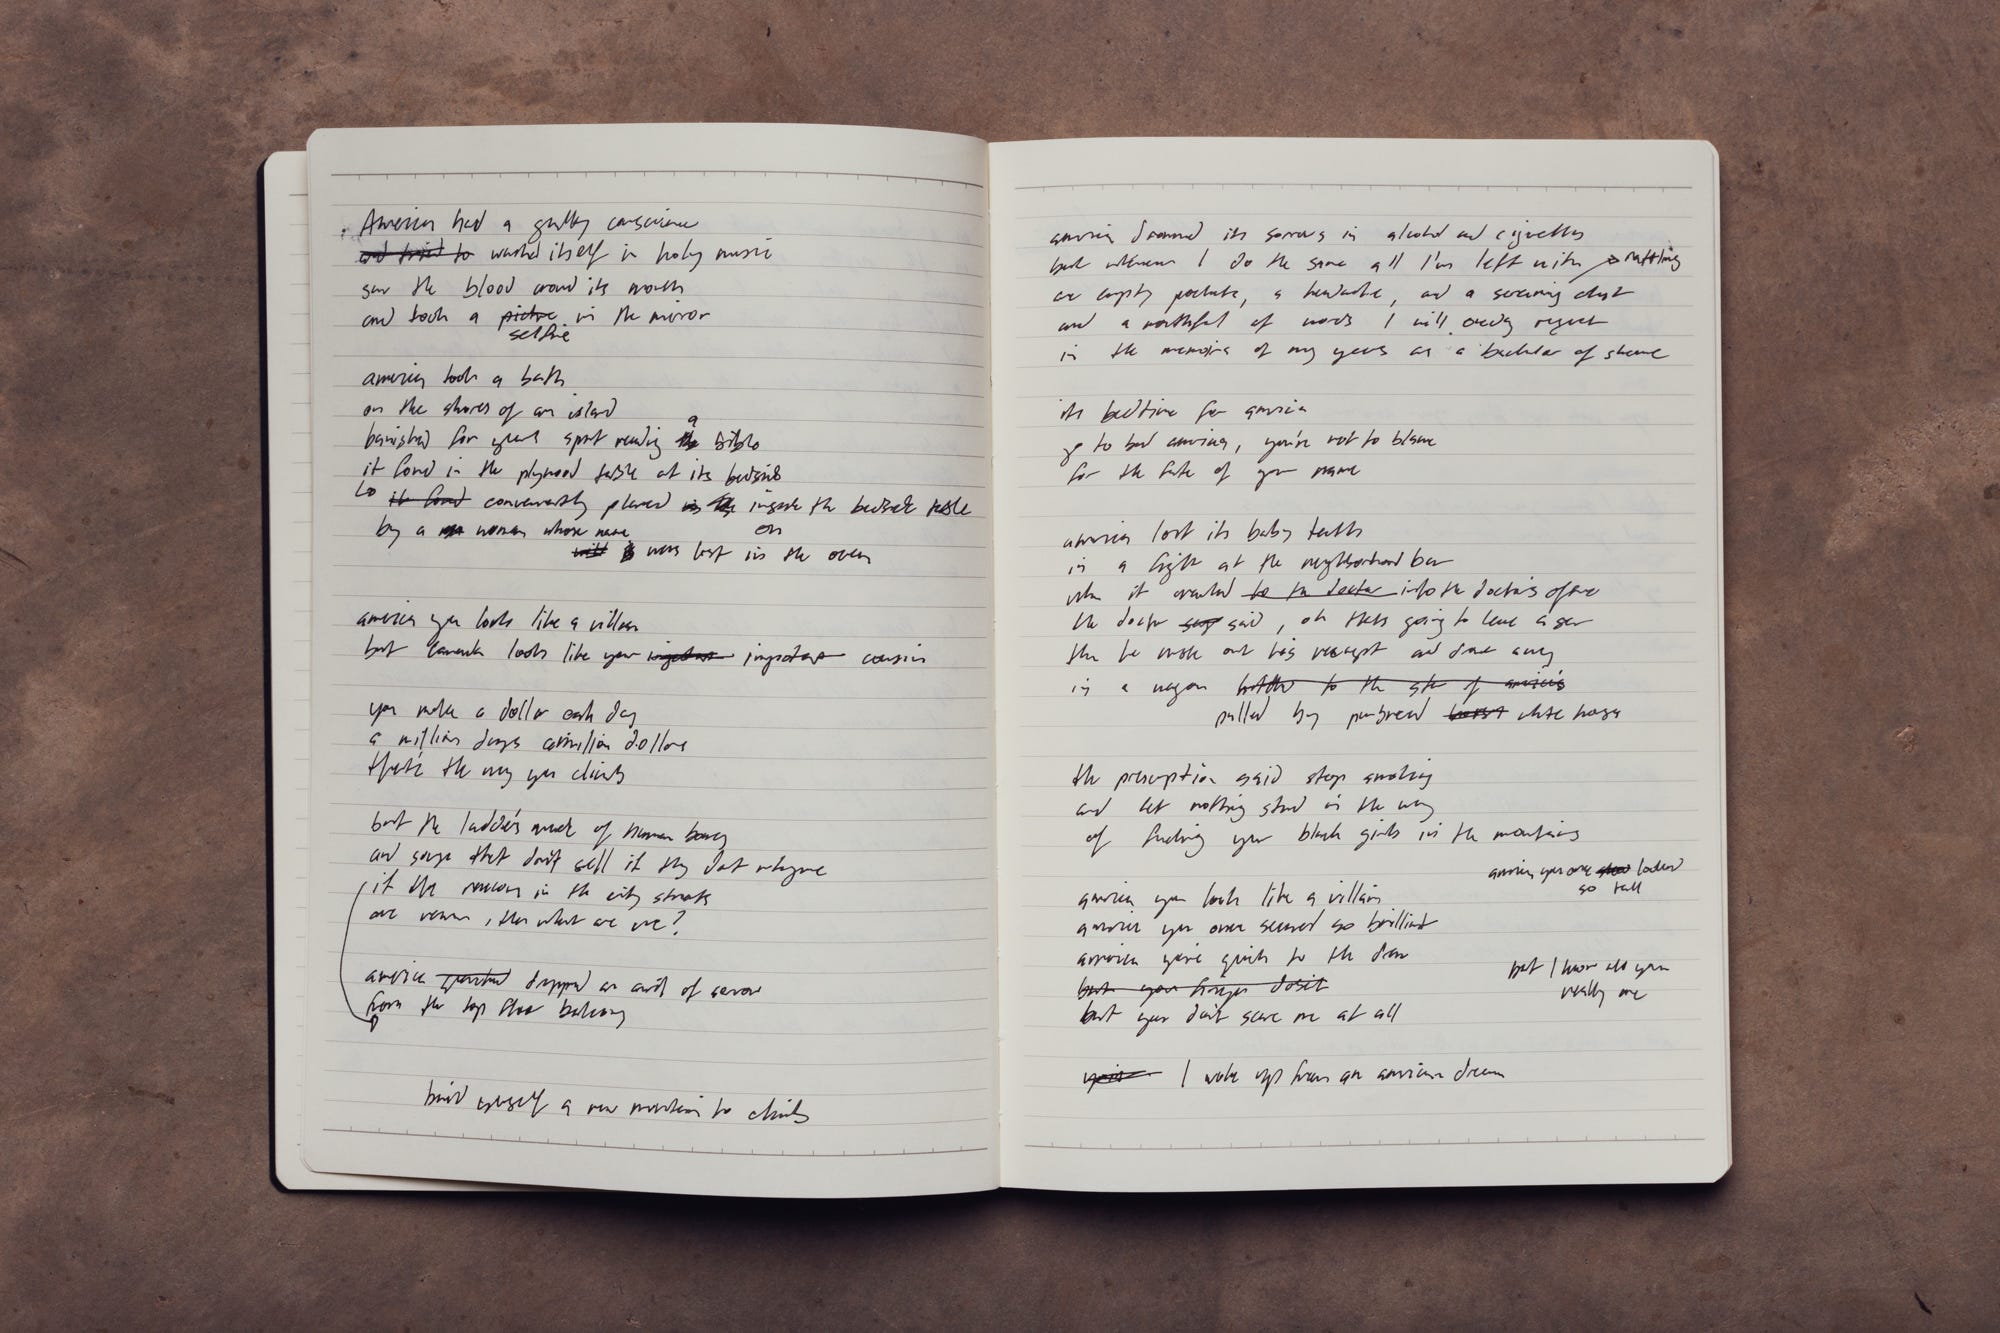 America had a guilty conscience
and tried to washed itself in holy music
saw the blood around its mouth
and took a picture in the mirror
selfie
america took a bath
on the shores of an island
banished for years spent reading the a bible
it found in the plywood table at its bedside
it found conveniently placed in the inside the bedside table
by a woman whose name
was lost in the ocean
on
america you look like a villain
but canada looks like your important cousin
you make a dollar each day
a million days a million dollars
that's the way you climb
but the ladder's made of human bones
and songs that don't sell if they don't rhyme
if the in the city streets
are, then what are we?
america dropped an anvil of sorrow
from the top floor balcony
build yourself a new mountain to climb
america drowned its sorrows in alcohol and cigarettes
but whenever I do the same all I'm left with rattling
are empty pockets, a headache, and a screaming chest
and a mouthful of words I will only regret
in the memoirs of my years as a bachelor of shame
it's bedtime for america
go to bed america, you're not to blame
for the fate of your name
america lost its baby teeth
in a fight at the neighborhood bar
when it crawled to the doctor into the doctor's office
the doctor says said, oh that's going to leave a scar
then he wrote out his receipt and drove away
in a wagon hitched to the star of america's
pulled by purebred horses white horses
the prescription said stop smoking
and let nothing stand in the way
of finding your black girls in the mountains
america you once looked
so tall
america you look like a villain
america you once seemed so brilliant
america you're quick to the draw
but I know that you
really me
but your finger doesn't
but you don't scare me at all
I woke up from an american dream